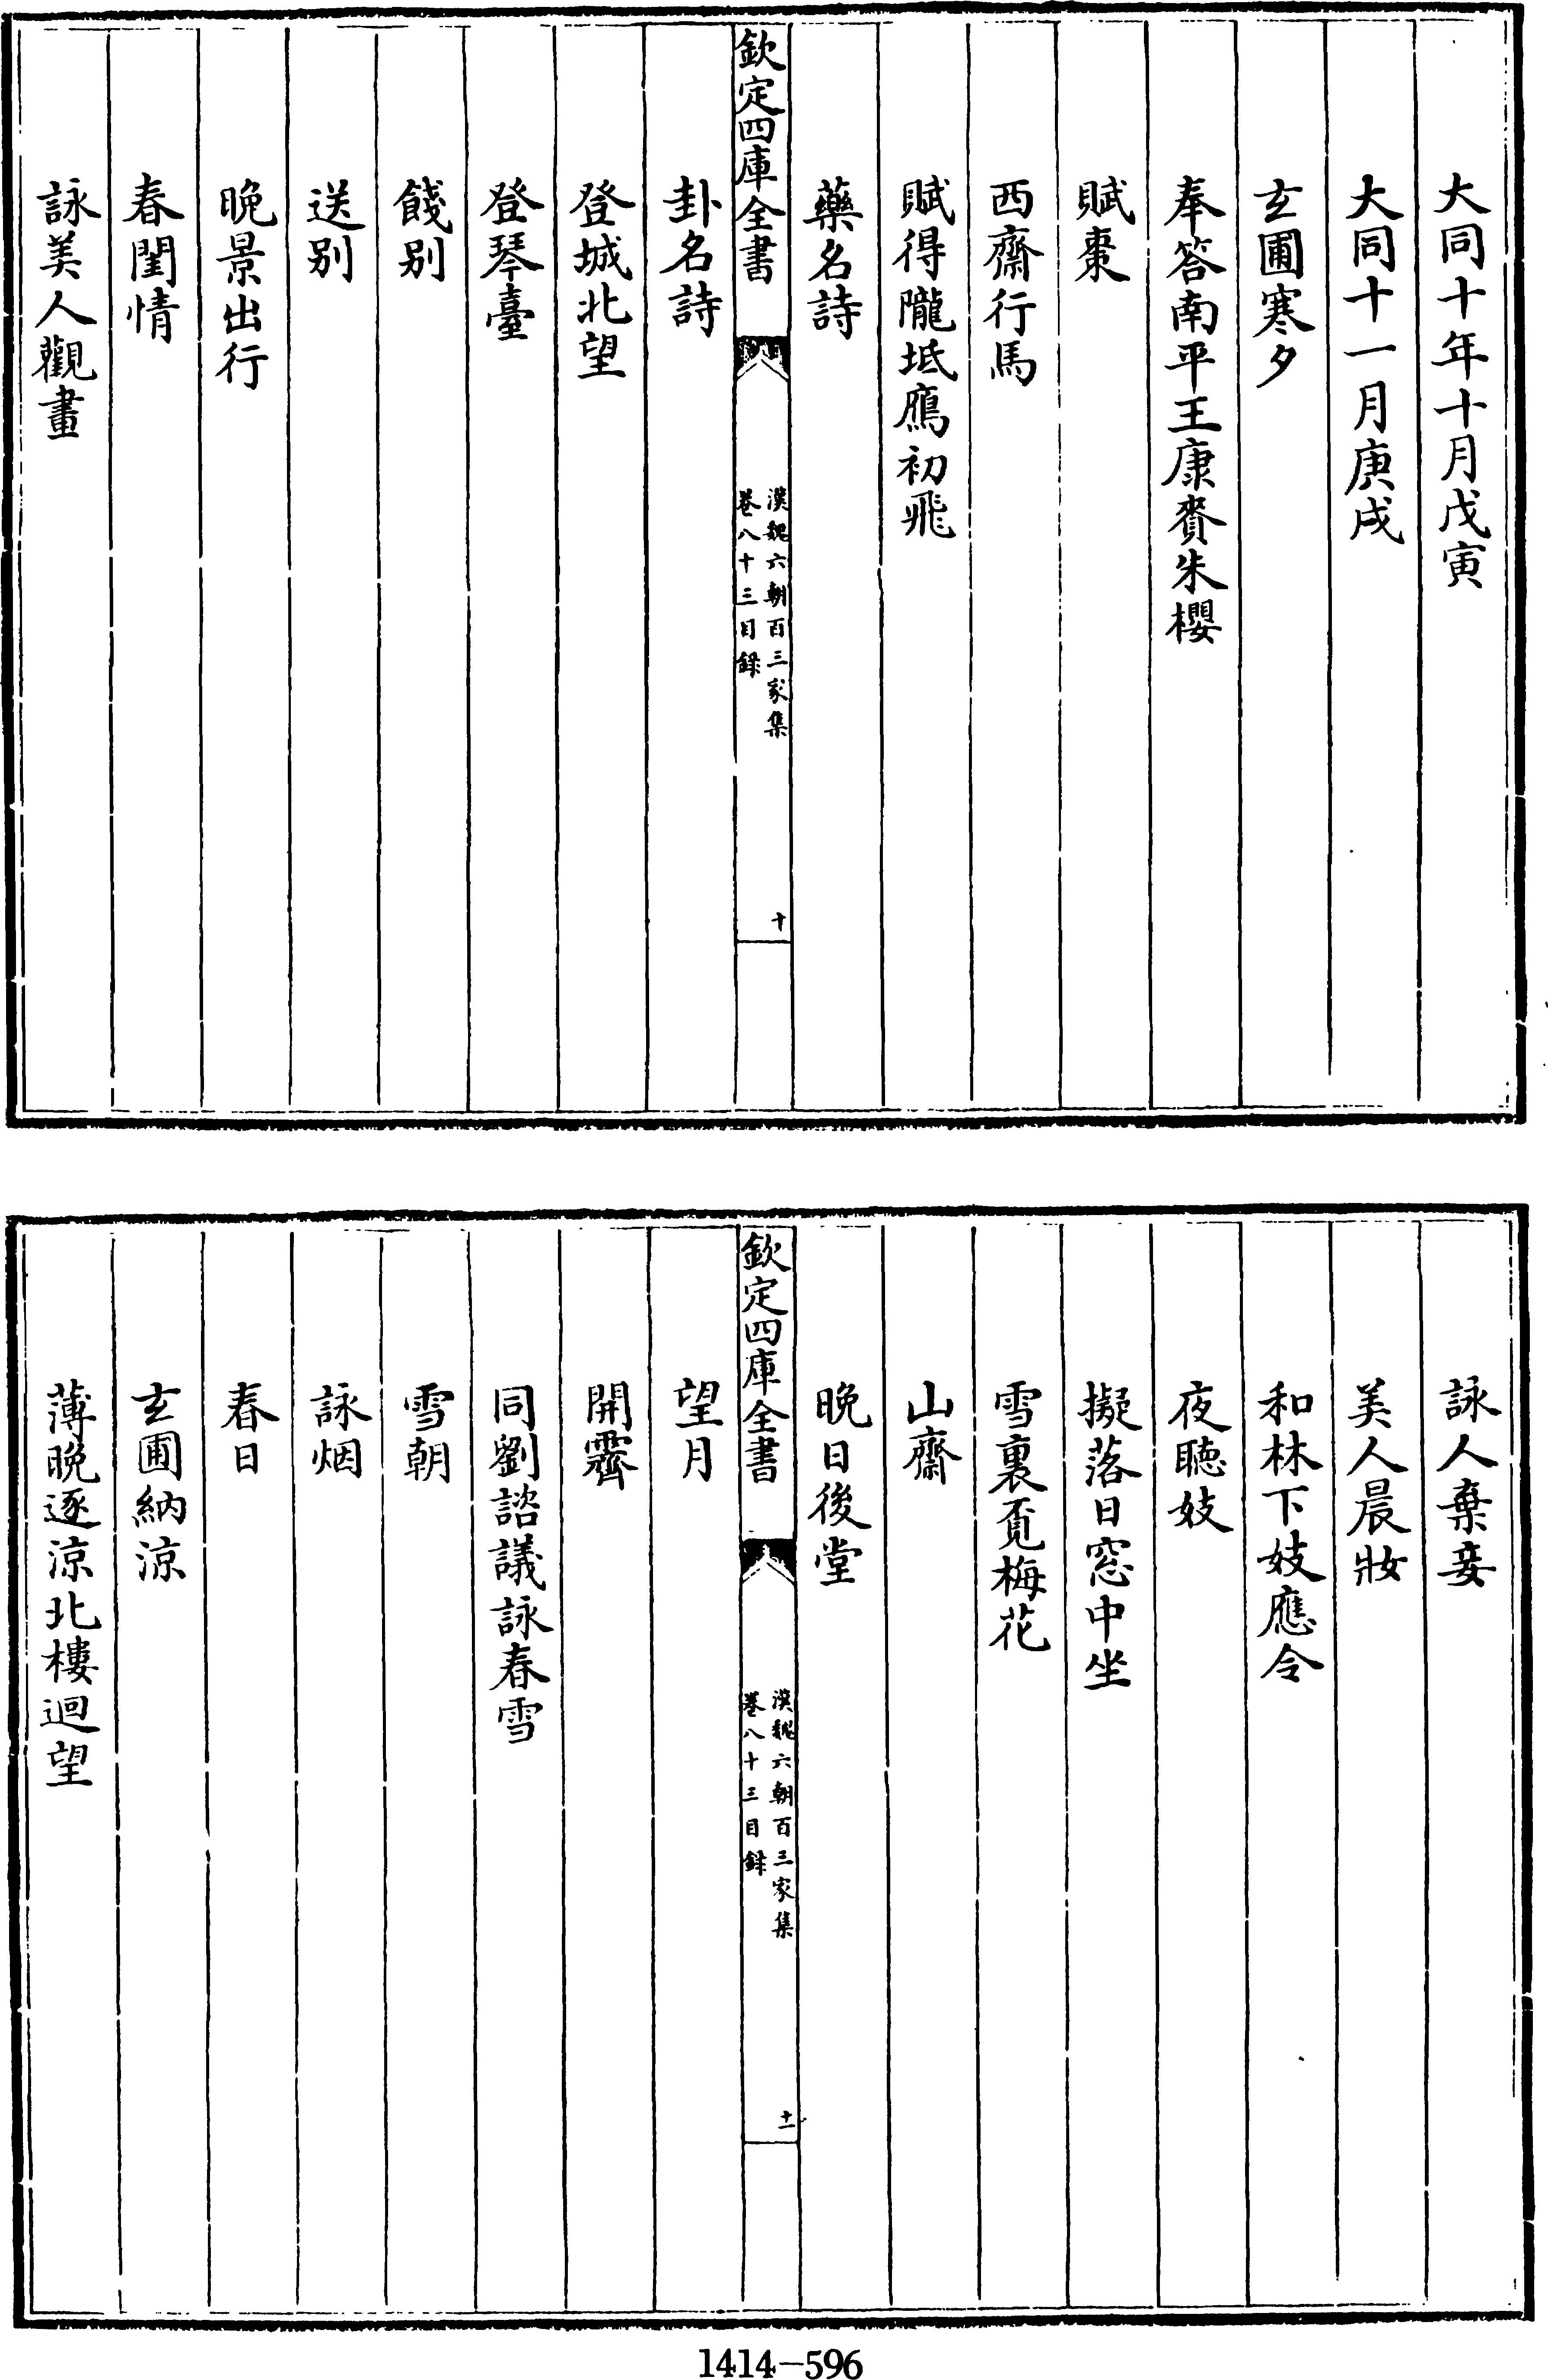 大同十年十月戊寅
大同十一月庚戌
玄圃寒夕
奉答南平王康賚朱櫻
賦棗
西齋行馬
賦得隴坻鴈初飛
藥名詩
欽定四庫全書
漢魏六朝百三家集
卷八十三目録
十
卦名詩
登城北望
登琴臺
餞别
送别
晚景出行
春閨情
詠美人觀畫
詠人棄妾
美人晨妝
和林下妓應令
夜聽妓
擬落日窓中坐
雪裏覓梅花
山齋
晚日後堂
欽定四庫全書
漢魏六朝百三家集
卷八十三目録
十一
望月
開霽
同劉諮議詠春雪
雪朝
詠烟
春日
玄圃納涼
薄晚逐涼北樓迴望
1414-596